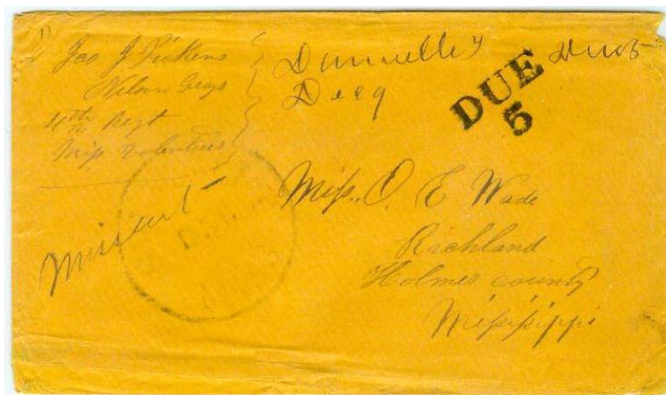 Geo J Pickens
Nelson Greys
4th Regt
Miss Volunteers
Missent
Danville Ky
Dec 9
Due 5
DUE
5
Miss. O. E Wade
Richland
Holmes county
Mississippi